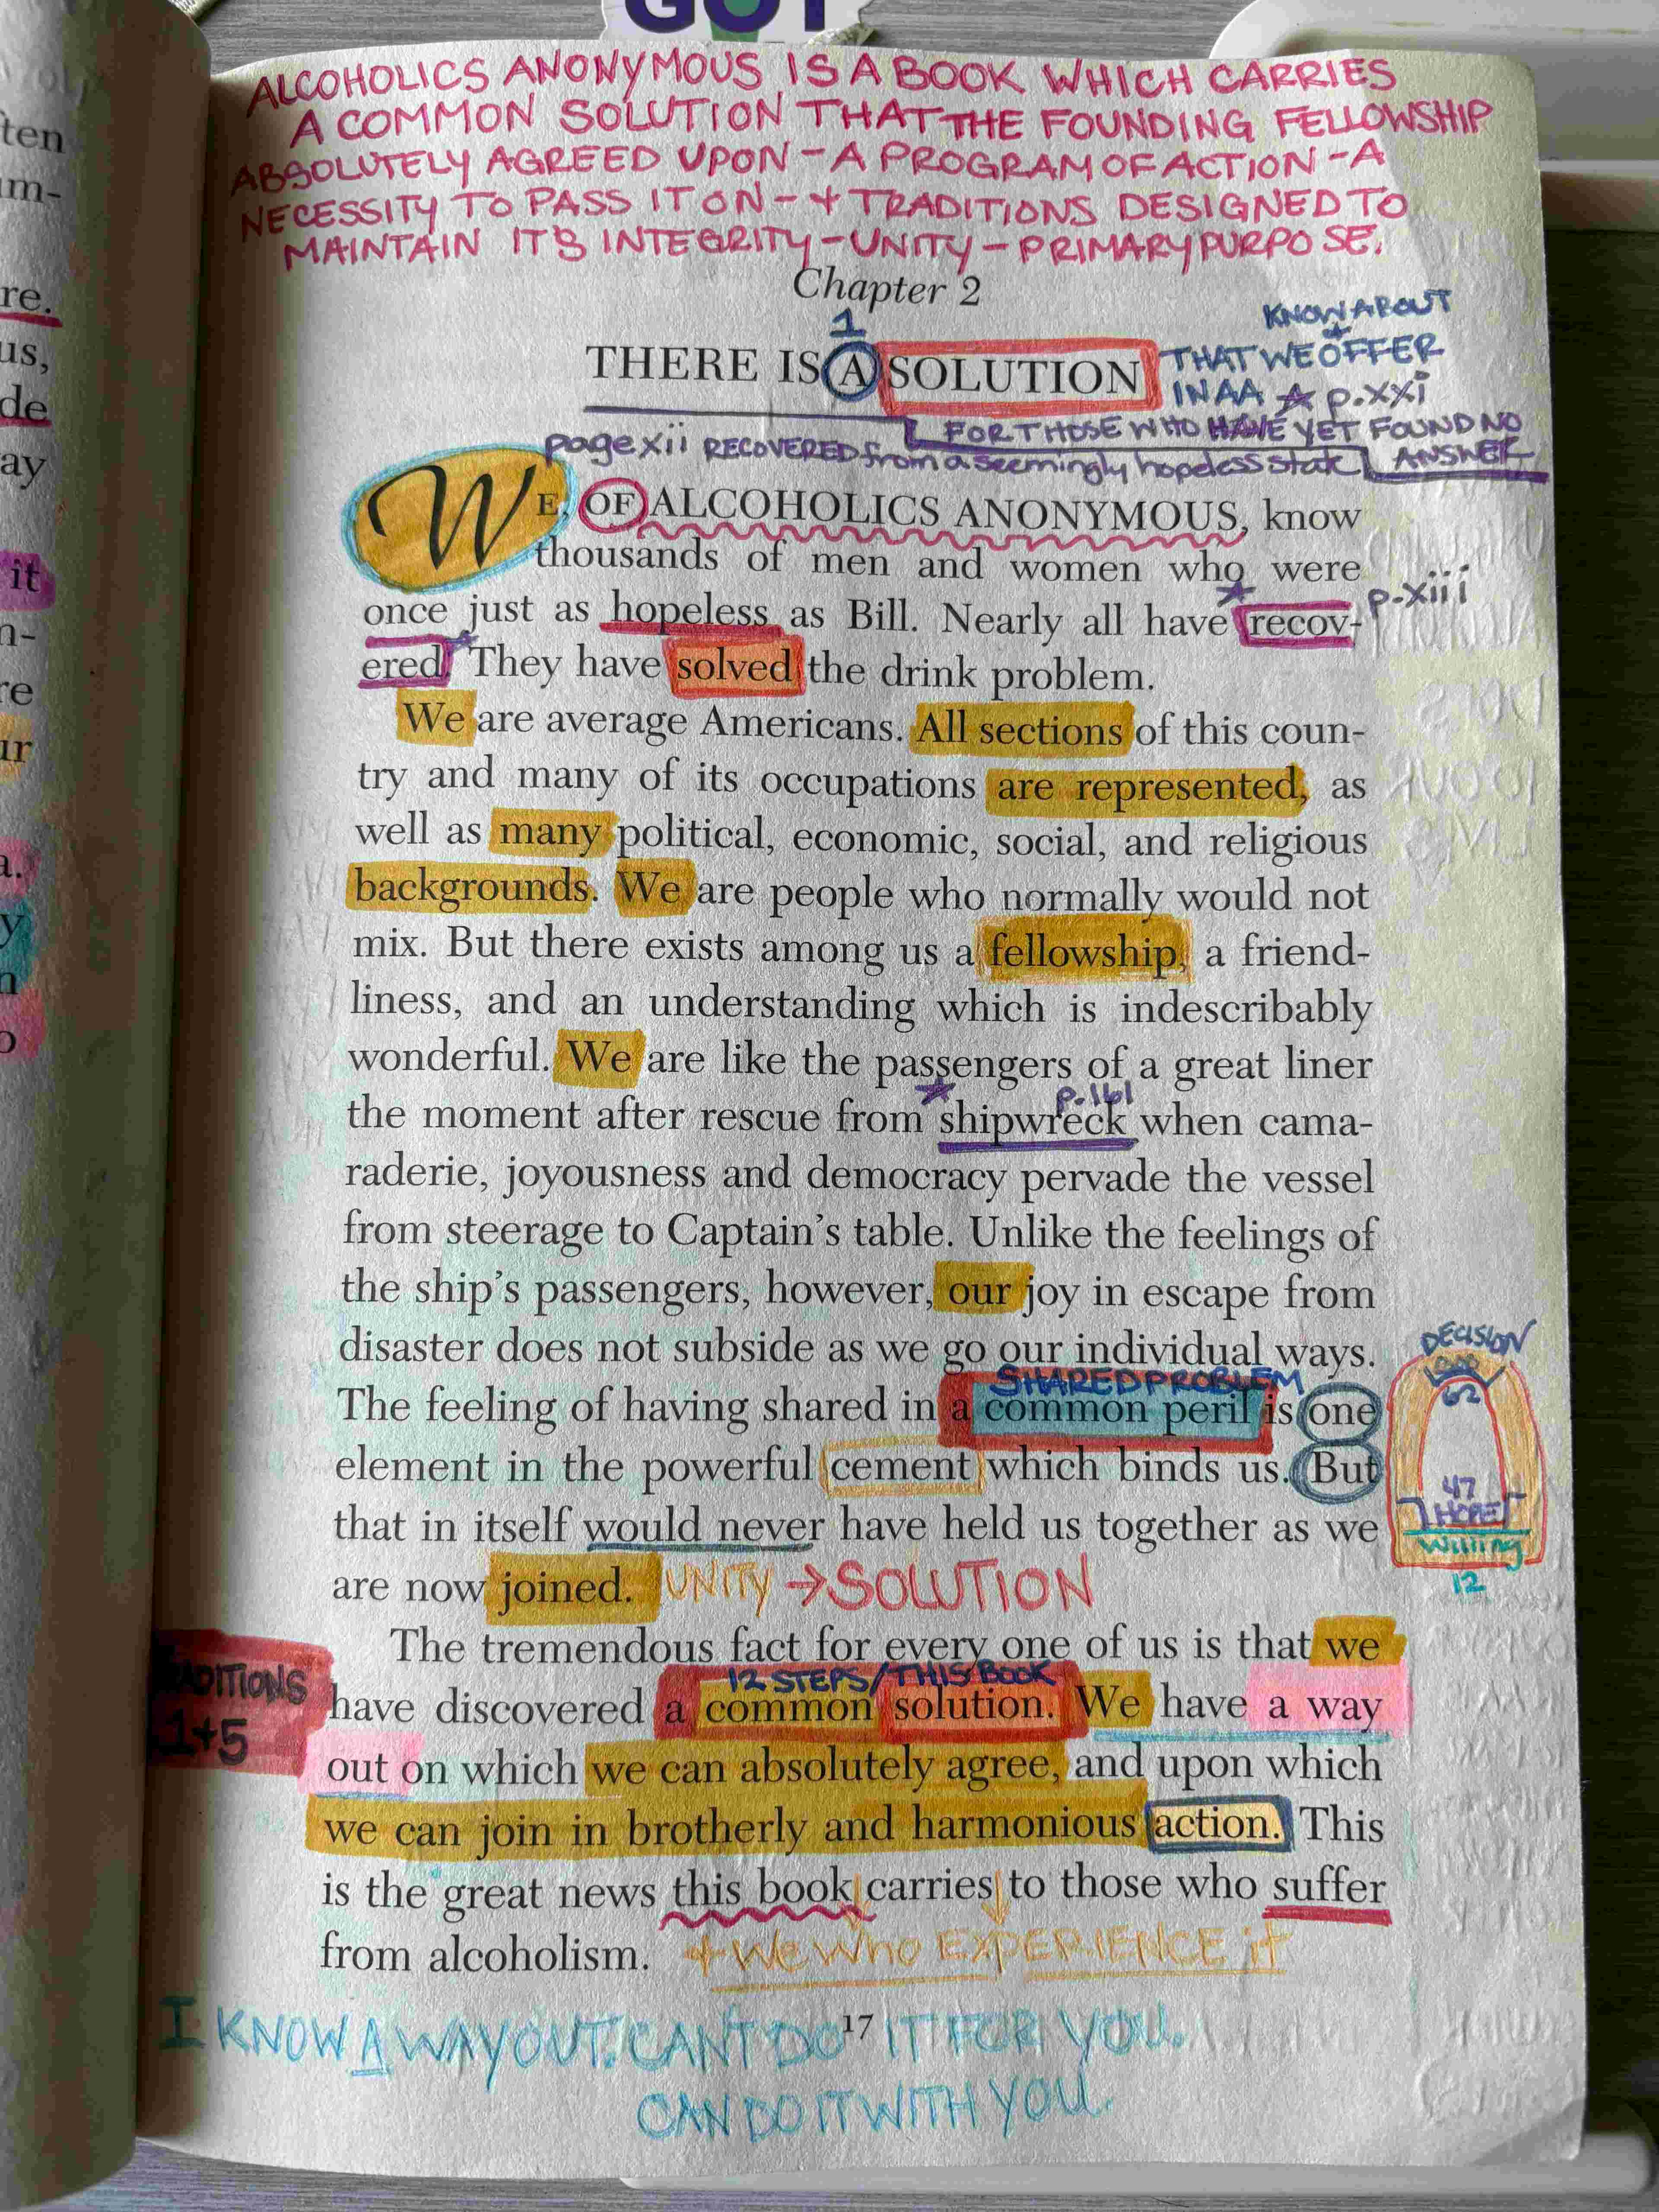 GOT
ALCOHOLICS ANONYMOUS IS A BOOK WHICH CARRIES
A COMMON SOLUTION THAT THE FOUNDING FELLOWSHIP
ABSOLUTELY AGREED UPON - A PROGRAM OF ACTION - A
NECESSITY TO PASS IT ON - + TRADITIONS DESIGNED TO
MAINTAIN IT'S INTEGRITY - UNITY - PRIMARY PURPOSE.
Chapter 2
1
KNOW ABOUT
+
THERE IS A SOLUTION THAT WE OFFER
IN AA ☆ p.xxi
FOR THOSE WHO HAVE YET FOUND NO
ANSWER
page xii RECOVERED from a seemingly hopeless state
WE, OF ALCOHOLICS ANONYMOUS, know
thousands of men and women who were
once just as hopeless as Bill. Nearly all have recov-
p-xiii
ered. They have solved the drink problem.
We are average Americans. All sections of this coun-
try and many of its occupations are represented, as
well as many political, economic, social, and religious
backgrounds. We are people who normally would not
mix. But there exists among us a fellowship, a friend-
liness, and an understanding which is indescribably
wonderful. We are like the passengers of a great liner
p.161
the moment after rescue from shipwreck when cama-
raderie, joyousness and democracy pervade the vessel
from steerage to Captain's table. Unlike the feelings of
the ship's passengers, however, our joy in escape from
disaster does not subside as we go our individual ways.
SHARED PROBLEM
The feeling of having shared in a common peril is one
element in the powerful cement which binds us. But
that in itself would never have held us together as we
are now joined. UNITY → SOLUTION
DECISION
62
47
HOPE
Willing
12
The tremendous fact for every one of us is that we
12 STEPS / THIS BOOK
have discovered a common solution. We have a way
out on which we can absolutely agree, and upon which
we can join in brotherly and harmonious action. This
is the great news this book carries to those who suffer
from alcoholism. + We Who EXPERIENCE it
1+5
17
I KNOW A WAY OUT. CAN'T DO IT FOR YOU.
CAN DO IT WITH YOU.
ten
m-
re.
us,
de
ay
it
n-
re
ur
a.
y
n
o